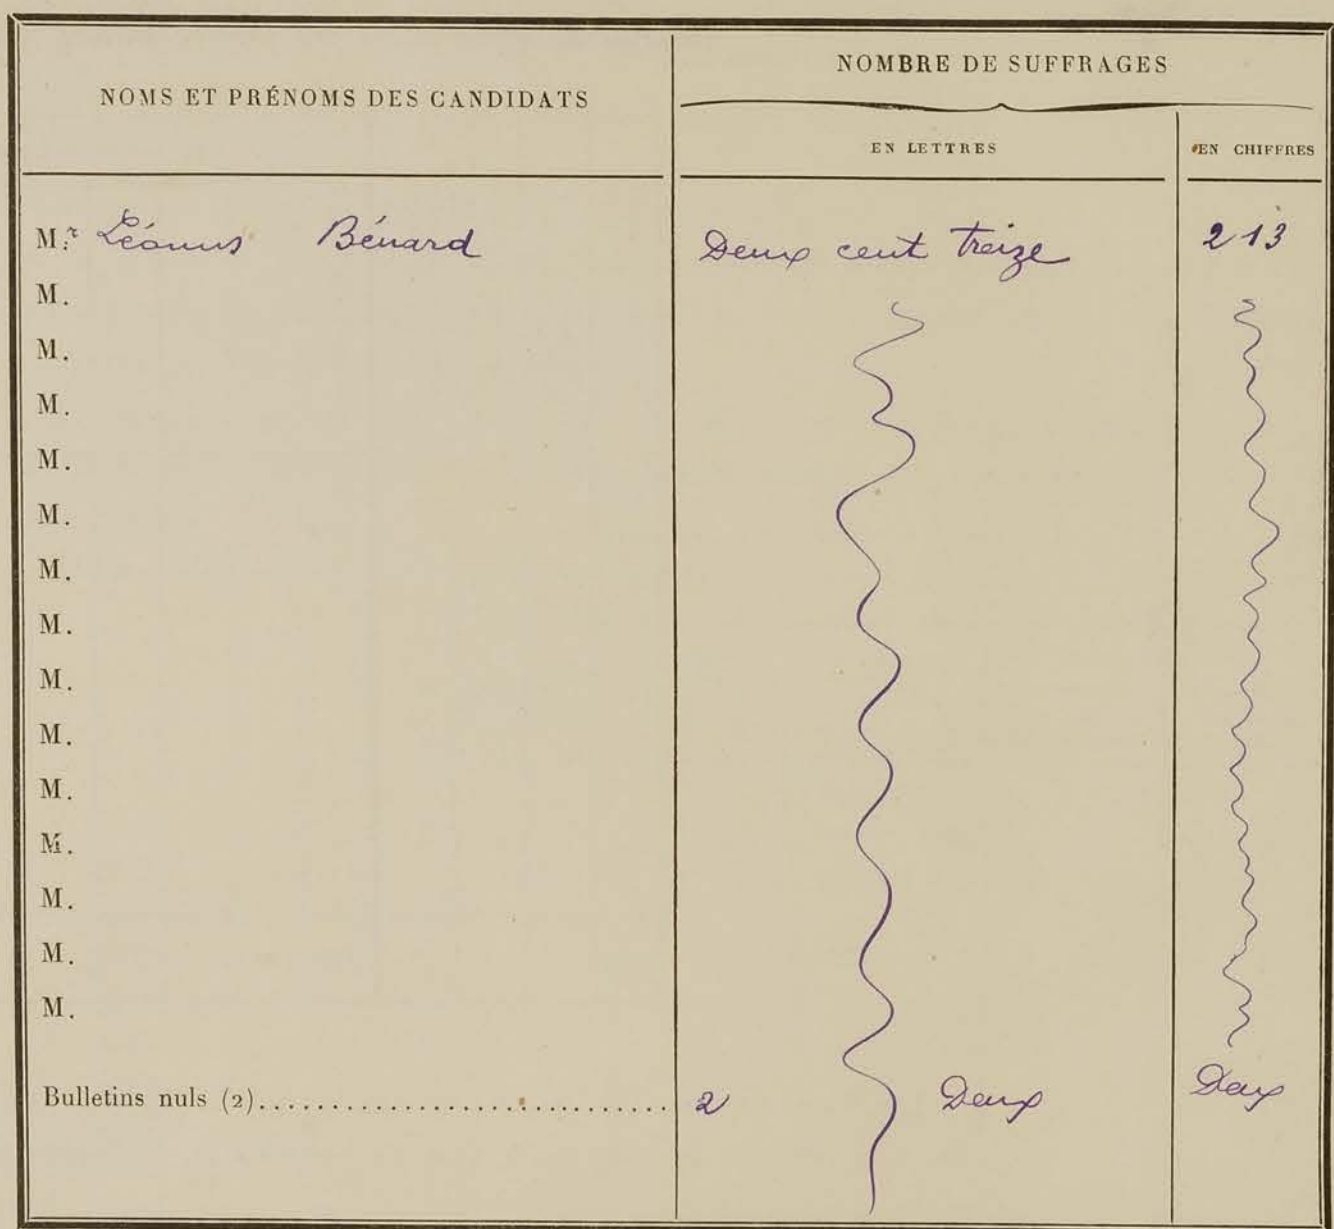 NOMS ET PRÉNOMS DES CANDIDATS
NOMBRE DE SUFFRAGES
EN LETTRES
EN CHIFFRES
M.r Léonus Bénard Deux cent treize 213
M.
M.
M.
M.
M.
M.
M.
M.
M.
M.
M.
M.
M.
M.
Bulletins nuls (2)............................ 2 Deux Deux